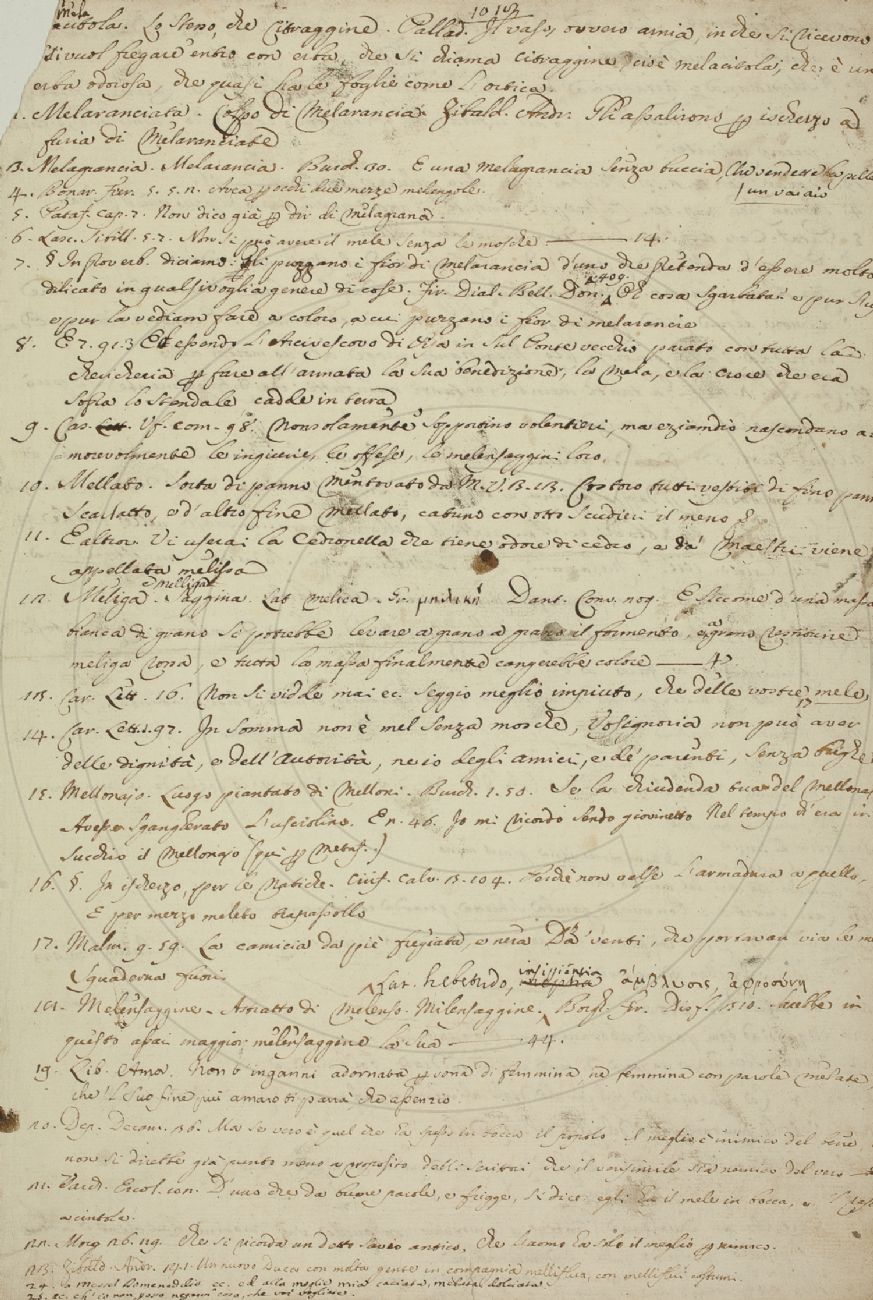 Mela
1013
citola. Lo stesso, che Citraggine. Pallad. Il vaso, ovvero arnia, in che si ricevono
si vuol fregare entro con erba, che si chiama citraggine, cioè melacitola, che è un
erba odorosa, che quasi ha le foglie come l'ortica.
Melaranciata. Colpo di Melarancia. Zibald. Andr. Gli assalirono p ischerzo a
furia di Melaranciate
3. Melagrancia. Melarancia. Burch. 30. E una melagrancia senza buccia, Che vendette la pelle
4. Bonar. Fier. 5. 5. 2. Avea p occhi due mezze melengole. un vaiaio
5. Pataf. cap. 7. Non dico già p dir di melagrana.
6. Lasc. Sibill. 5. 7. Non si può avere il mele senza le mosche — 14.
7. § In Proverb. diciamo: Gli puzzano i fior di Melarancia d'uno che pretenda d'essere molto
dilicato in qualsivoglia genere di cose. Fir. Dial. Bell. Don. 409. Che cosa sgarbata! e pur
e pur la vediam fare a coloro, a cui puzzano i fior di melarancie
8. E 7. 91. 3 Et essendo l'Arcivescovo di in sul Ponte vecchio parato con tutta la
chericheria p fare all'armata la sua benedizione, la Mela, e la croce che era
sopra lo stendale cadde in terra
9. Cas. Uf. com. 98. Non solamente sopportino volentieri, ma eziamdio nascondano a-
morevolmente le ingiurie, le offese, le melensaggini loro.
10. Mellato. Sorta di panno mentovato da M. V. 3. 13. Costoro tutti vestiti di fino pann
Scarlatto, e d'altro fine mellato, catuno con otto scudieri il meno &
11. E altrov. Vi userai la Cedronella che tiene odore di cedro, e da' maestri viene
appellata melissa
o Melliga
12. Meliga. Saggina. Lat. melica. Gr. μηλική Dant. Conv. 109. E siccome d'una massa
bianca di grano si potrebbe levare a grano a grano il formento, e a grano restituire
meliga rossa, e tutta la massa finalmente cangerebbe colore — 4.
13. Car. Lett. 16. Non si vidde mai ec. seggio meglio impiuto, che delle vostre mele,
17
14. Car. Lett. 1. 97. In somma non è mel senza mosche, Vosignoria non può aver
delle dignità, e dell'autorità, ne io degli amici, e de' parenti, senza brighe
15. Mellonajo. Luogo piantato di Melloni. Burch. 1. 50. Se la chiudenda tua del Mellonajo
Avesse sgangherato l'usciolino. E 2. 46. Io mi ricordo sendo giovinetto Nel tempo ch'era in
succhio il Mellonajo (qui p Metaf.)
16. §. In ischerzo, per le Natiche. Ciriff. Calv. 3. 104. Perchè non valse l'armadura a quello,
E per mezzo melebo trapassollo
17. Malm. 9. 59. La camicia da piè fregiata, e nera Da' venti, che portavan via le me
Squaderna fuori
Lat. hebetudo, insipientia ἄμβλυσις, ἀφροσύνη
18. Melensaggine. Astratto di Melenso. Milensaggine. Borgh. Fir. Disf. 310. Sarebbe in
questo assai maggior melensaggine la sua — 44.
19. Lib. Ama. Non t'inganni adornata p sona di femmina nè femmina con parole melate,
che 'l suo fine più amaro ti parrà che assenzio.
20. Dep. Decam. 36. Ma se vero è quel che ha spesso in bocca il popolo il meglio è inimico del bene
non si direbbe già punto meno a proposito delli scritti che il verisimile sia nemico del vero
21. Varch. Ercol. con. D'uno che dà buone parole, e frigge, si dice: egli ha il mele in bocca, e 'l raso
a cintola.
22. Morg. 26. 29. Che si ricorda un detto savio antico, Che l'uomo ha solo il meglio p nimico.
23. Zibald. Andr. 141. Un nuovo Duca con molta gente in compagnia melliflua, con melliflui costumi.
24. ec.
25. ec.